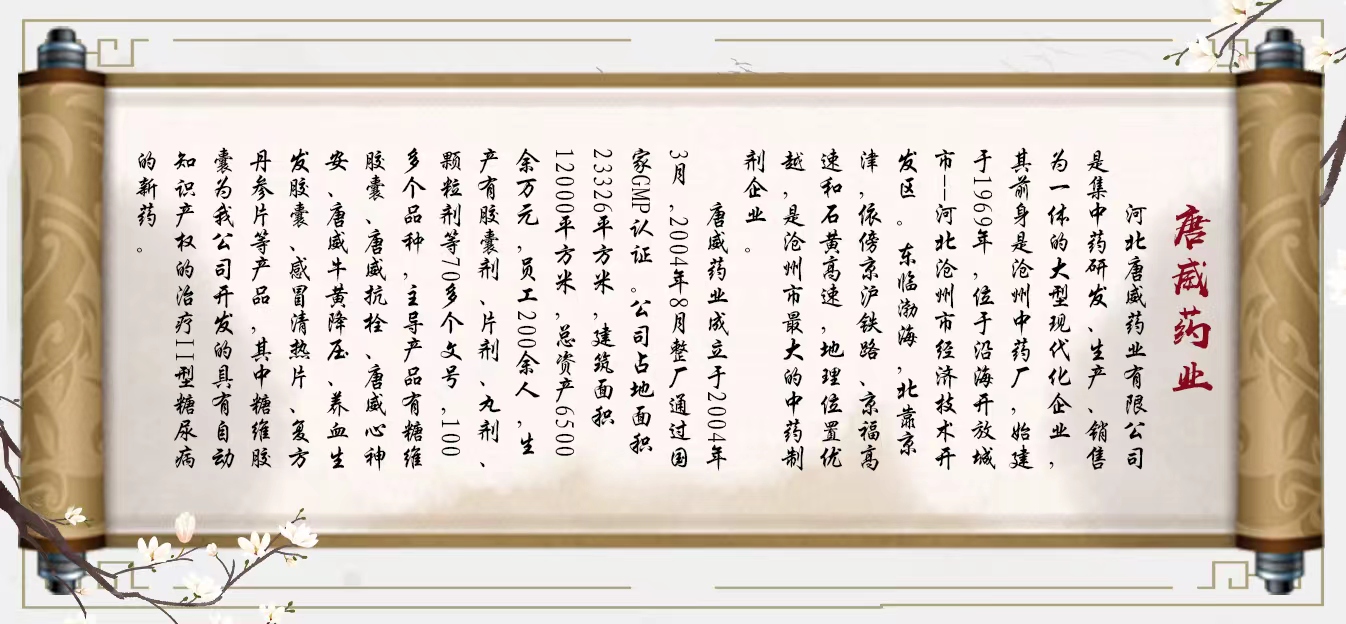 唐威药业
河北唐威药业有限公司
是集中药研发、生产、销售
为一体的大型现代化企业，
其前身是沧州中药厂，始建
于1969年，位于沿海开放城
市--河北沧州市经济技术开
发区。东临渤海，北靠京
津，依傍京沪铁路、京福高
速和石黄高速，地理位置优
越，是沧州市最大的中药制
剂企业。
唐威药业成立于2004年
3月，2004年8月整厂通过国
家GMP认证。公司占地面积
23326平方米，建筑面积
12000平方米，总资产6500
余万元，员工200余人，生
产有胶囊剂、片剂、丸剂、
颗粒剂等70多个文号，100
多个品种，主导产品有糖维
胶囊、唐威抗栓、唐威心神
安、唐威牛黄降压、养血生
发胶囊、感冒清热片、复方
丹参片等产品，其中糖维胶
囊为我公司开发的具有自动
知识产权的治疗II型糖尿病
的新药。